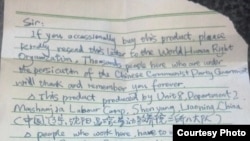 Sir:
If you occassionally buy this product, please
kindly resend this letter to the World Human Right
Organization. Thousands people here who are under
the persicution of the Chinese Communist Party Government
will thank and remember you forever.
This product produced by Unit 8, Department 2,
Masanjia Labour Camp, Shenyang, Liaoning, China
(中国,辽宁,沈阳,马三家
people who work here, have to
Courtesy Photo